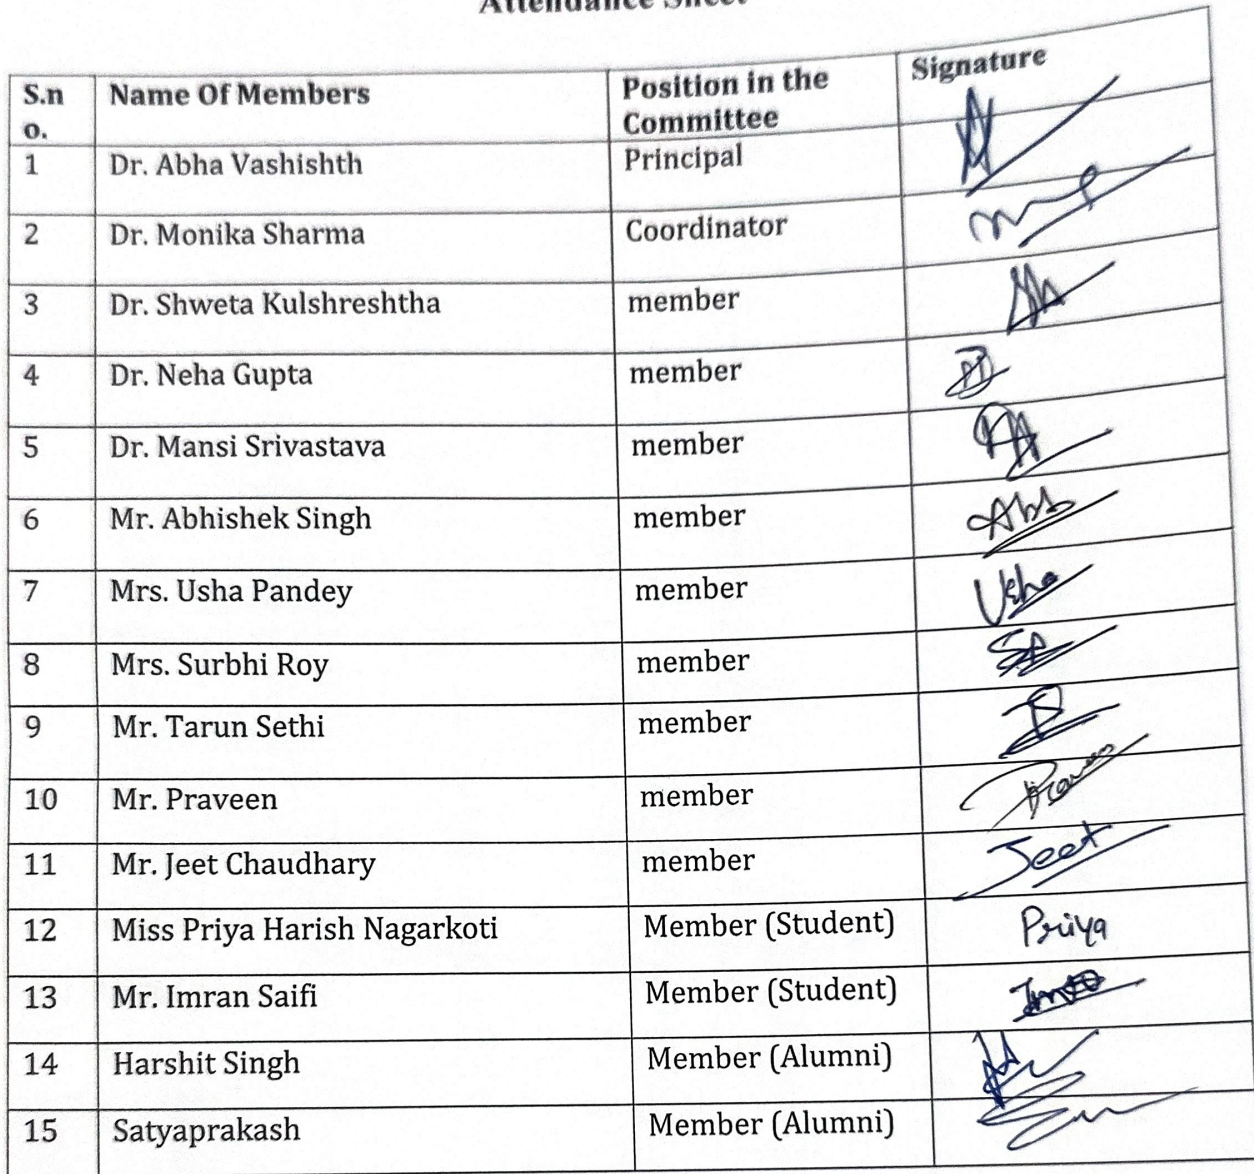 Attendance Sheet
S.n o. Name Of Members Position in the Committee Signature
1 Dr. Abha Vashishth Principal
2 Dr. Monika Sharma Coordinator
3 Dr. Shweta Kulshreshtha member
4 Dr. Neha Gupta member
5 Dr. Mansi Srivastava member
6 Mr. Abhishek Singh member
7 Mrs. Usha Pandey member Usha
8 Mrs. Surbhi Roy member
9 Mr. Tarun Sethi member
10 Mr. Praveen member
11 Mr. Jeet Chaudhary member Jeet
12 Miss Priya Harish Nagarkoti Member (Student) Priya
13 Mr. Imran Saifi Member (Student)
14 Harshit Singh Member (Alumni)
15 Satyaprakash Member (Alumni)